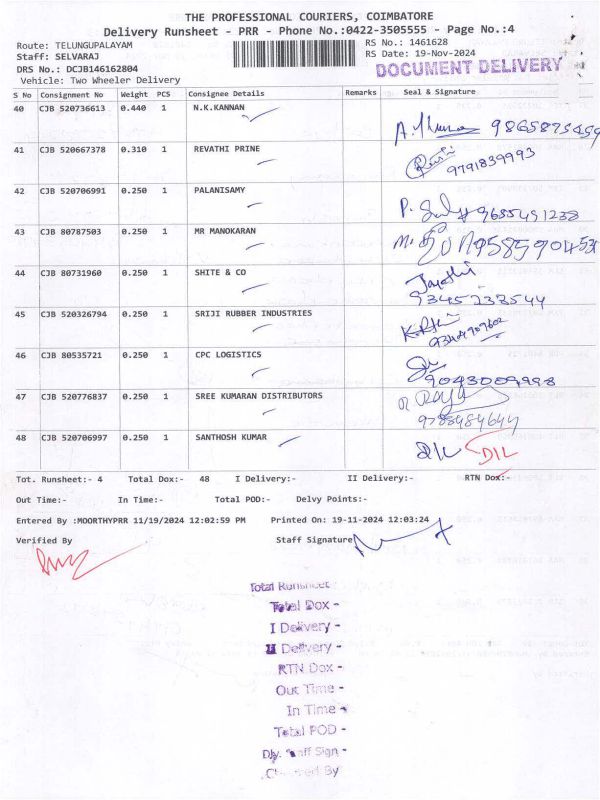 THE PROFESSIONAL COURIERS, COIMBATORE
Delivery Runsheet - PRR - Phone No.:0422-3505555 - Page No.:4
Route: TELUNGUPALAYAM RS No.: 1461628
Staff: SELVARAJ RS Date: 19-Nov-2024
DRS No.: DCJB146162804 DOCUMENT DELIVERY
Vehicle: Two Wheeler Delivery
S No Consignment No Weight PCS Consignee Details Remarks Seal & Signature
40 CJB 520736613 0.440 1 N.K.KANNAN
41 CJB 520667378 0.310 1 REVATHI PRINE
9791839993
42 CJB 520706991 0.250 1 PALANISAMY
9655491238
43 CJB 80787503 0.250 1 MR MANOKARAN
44 CJB 80731960 0.250 1 SHITE & CO
9345233544
45 CJB 520326794 0.250 1 SRIJI RUBBER INDUSTRIES
46 CJB 80535721 0.250 1 CPC LOGISTICS
9043009998
47 CJB 520776837 0.250 1 SREE KUMARAN DISTRIBUTORS
48 CJB 520706997 0.250 1 SANTHOSH KUMAR D/L
Tot. Runsheet:- 4 Total Dox:- 48 I Delivery:- II Delivery:- RTN Dox:-
Out Time:- In Time:- Total POD:- Delvy Points:-
Entered By :MOORTHYPRR 11/19/2024 12:02:59 PM Printed On: 19-11-2024 12:03:24
Verified By Staff Signature
Total Runsheet -
Total Dox -
I Delivery -
II Delivery -
RTN Dox -
Out Time -
In Time -
Total POD -
Dly. Staff Sign -
Checked By